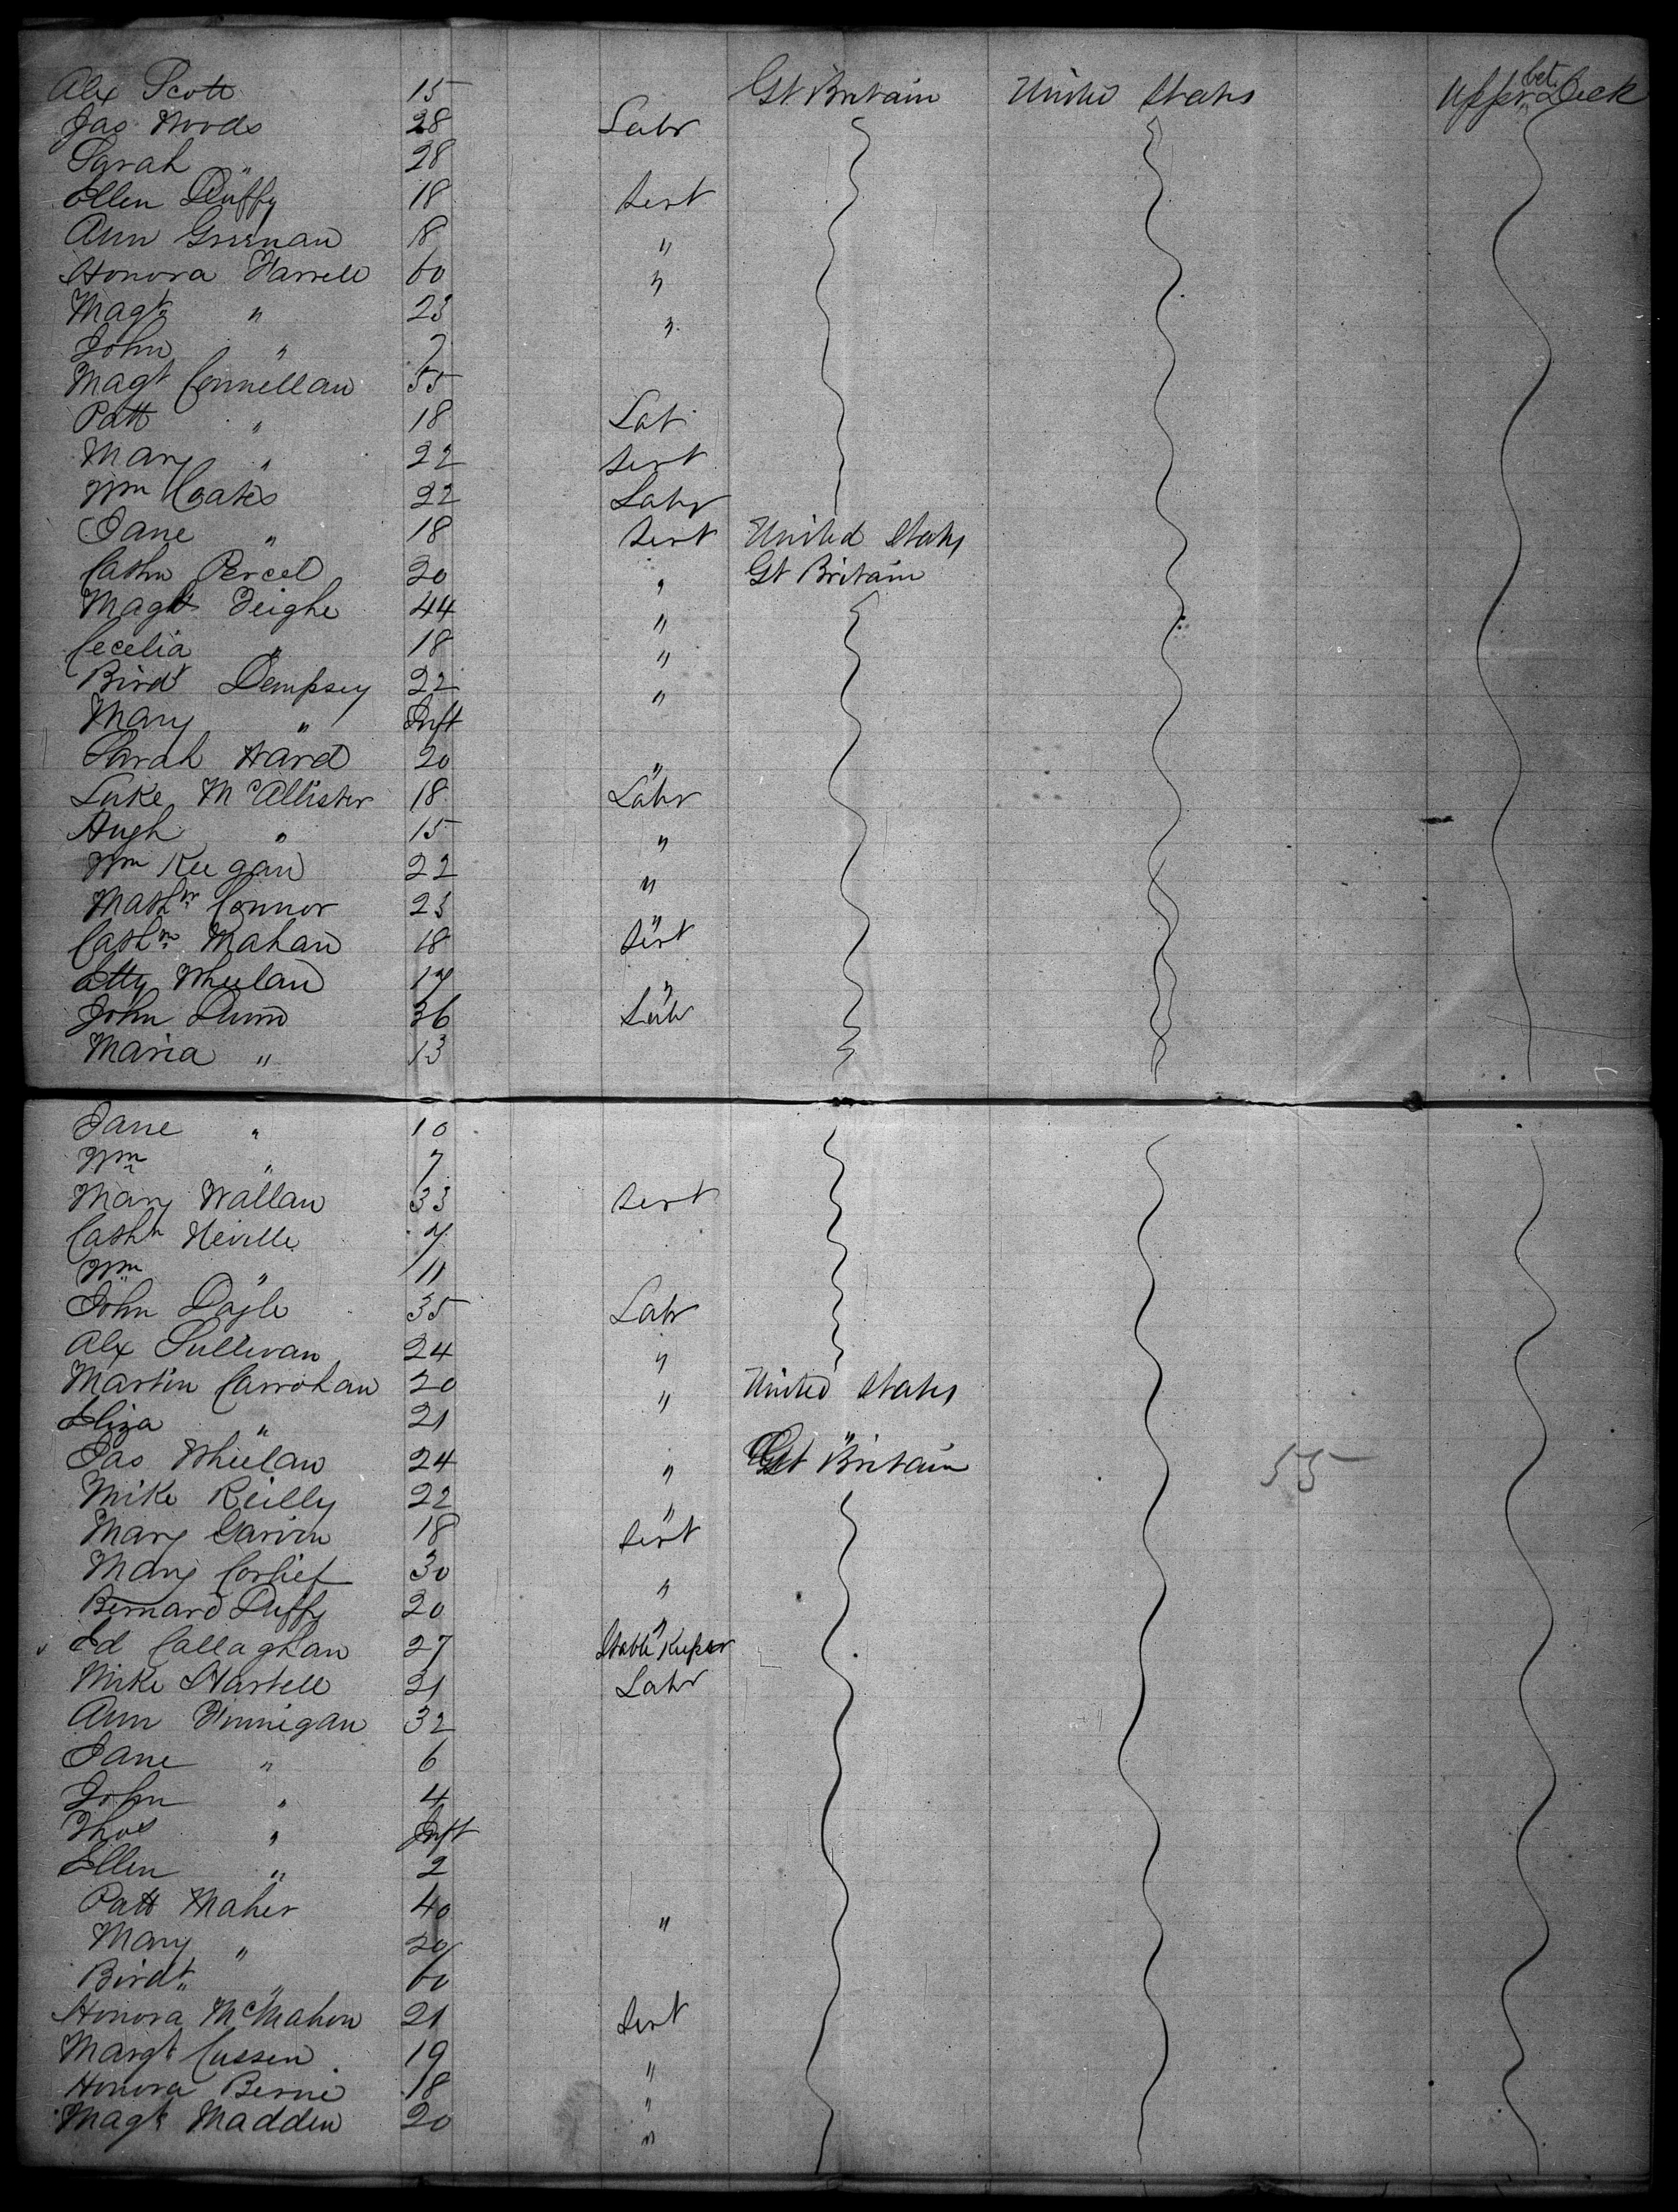 Alex Scott 15 Gt Britain United States Upper bet Deck
Jas Woods 28 Labr
Sarah " 28
Ellen Duffy 18 Servt
Ann Greenan 18 "
Honora Farrell 60 "
Magt " 23 "
John " 7
Magt Connellan 55
Patt " 18 Lab
Mary " 22 Servt
Wm Coates 22 Labr
Jane " 18 Servt United States
Cathn Percel 20 " Gt Britain
Magt Feighe 44 "
Cecelia " 18 "
Birdt Dempsey 22 "
Mary " Inft
Sarah Ward 20 "
Luke McAllister 18 Labr
Hugh " 15 "
Wm Keegan 22 "
Mathw Connor 23 "
Cathn Mahan 18 Servt
Etty Wheelan 17 "
John Dunn 36 Labr
Maria " 13
Jane " 10
Wm " 7
Mary Wallan 33 Servt
Cathn Neville 7
Wm " 11
John Doyle 35 Labr
Alex Sullivan 24 "
Martin Carrohan 20 " United States
Eliza " 21 "
Jas Wheelan 24 " Gt Britain 55
Mike Reilly 22 "
Mary Garvin 18 Servt
Mary 30 "
Bernard Duffy 20 "
Ed Callaghan 27 Stable Keeper
Mike Hartell 21 Labr
Ann Finnigan 32
Jane " 6
John " 4
Thos " Inft
Ellen " 2
Patt Maher 40 "
Mary " 20
Birdt " 60
Honora McMahon 21 Servt
Margt Cussen 19 "
Honora Berne 18 "
Magt Madden 20 "